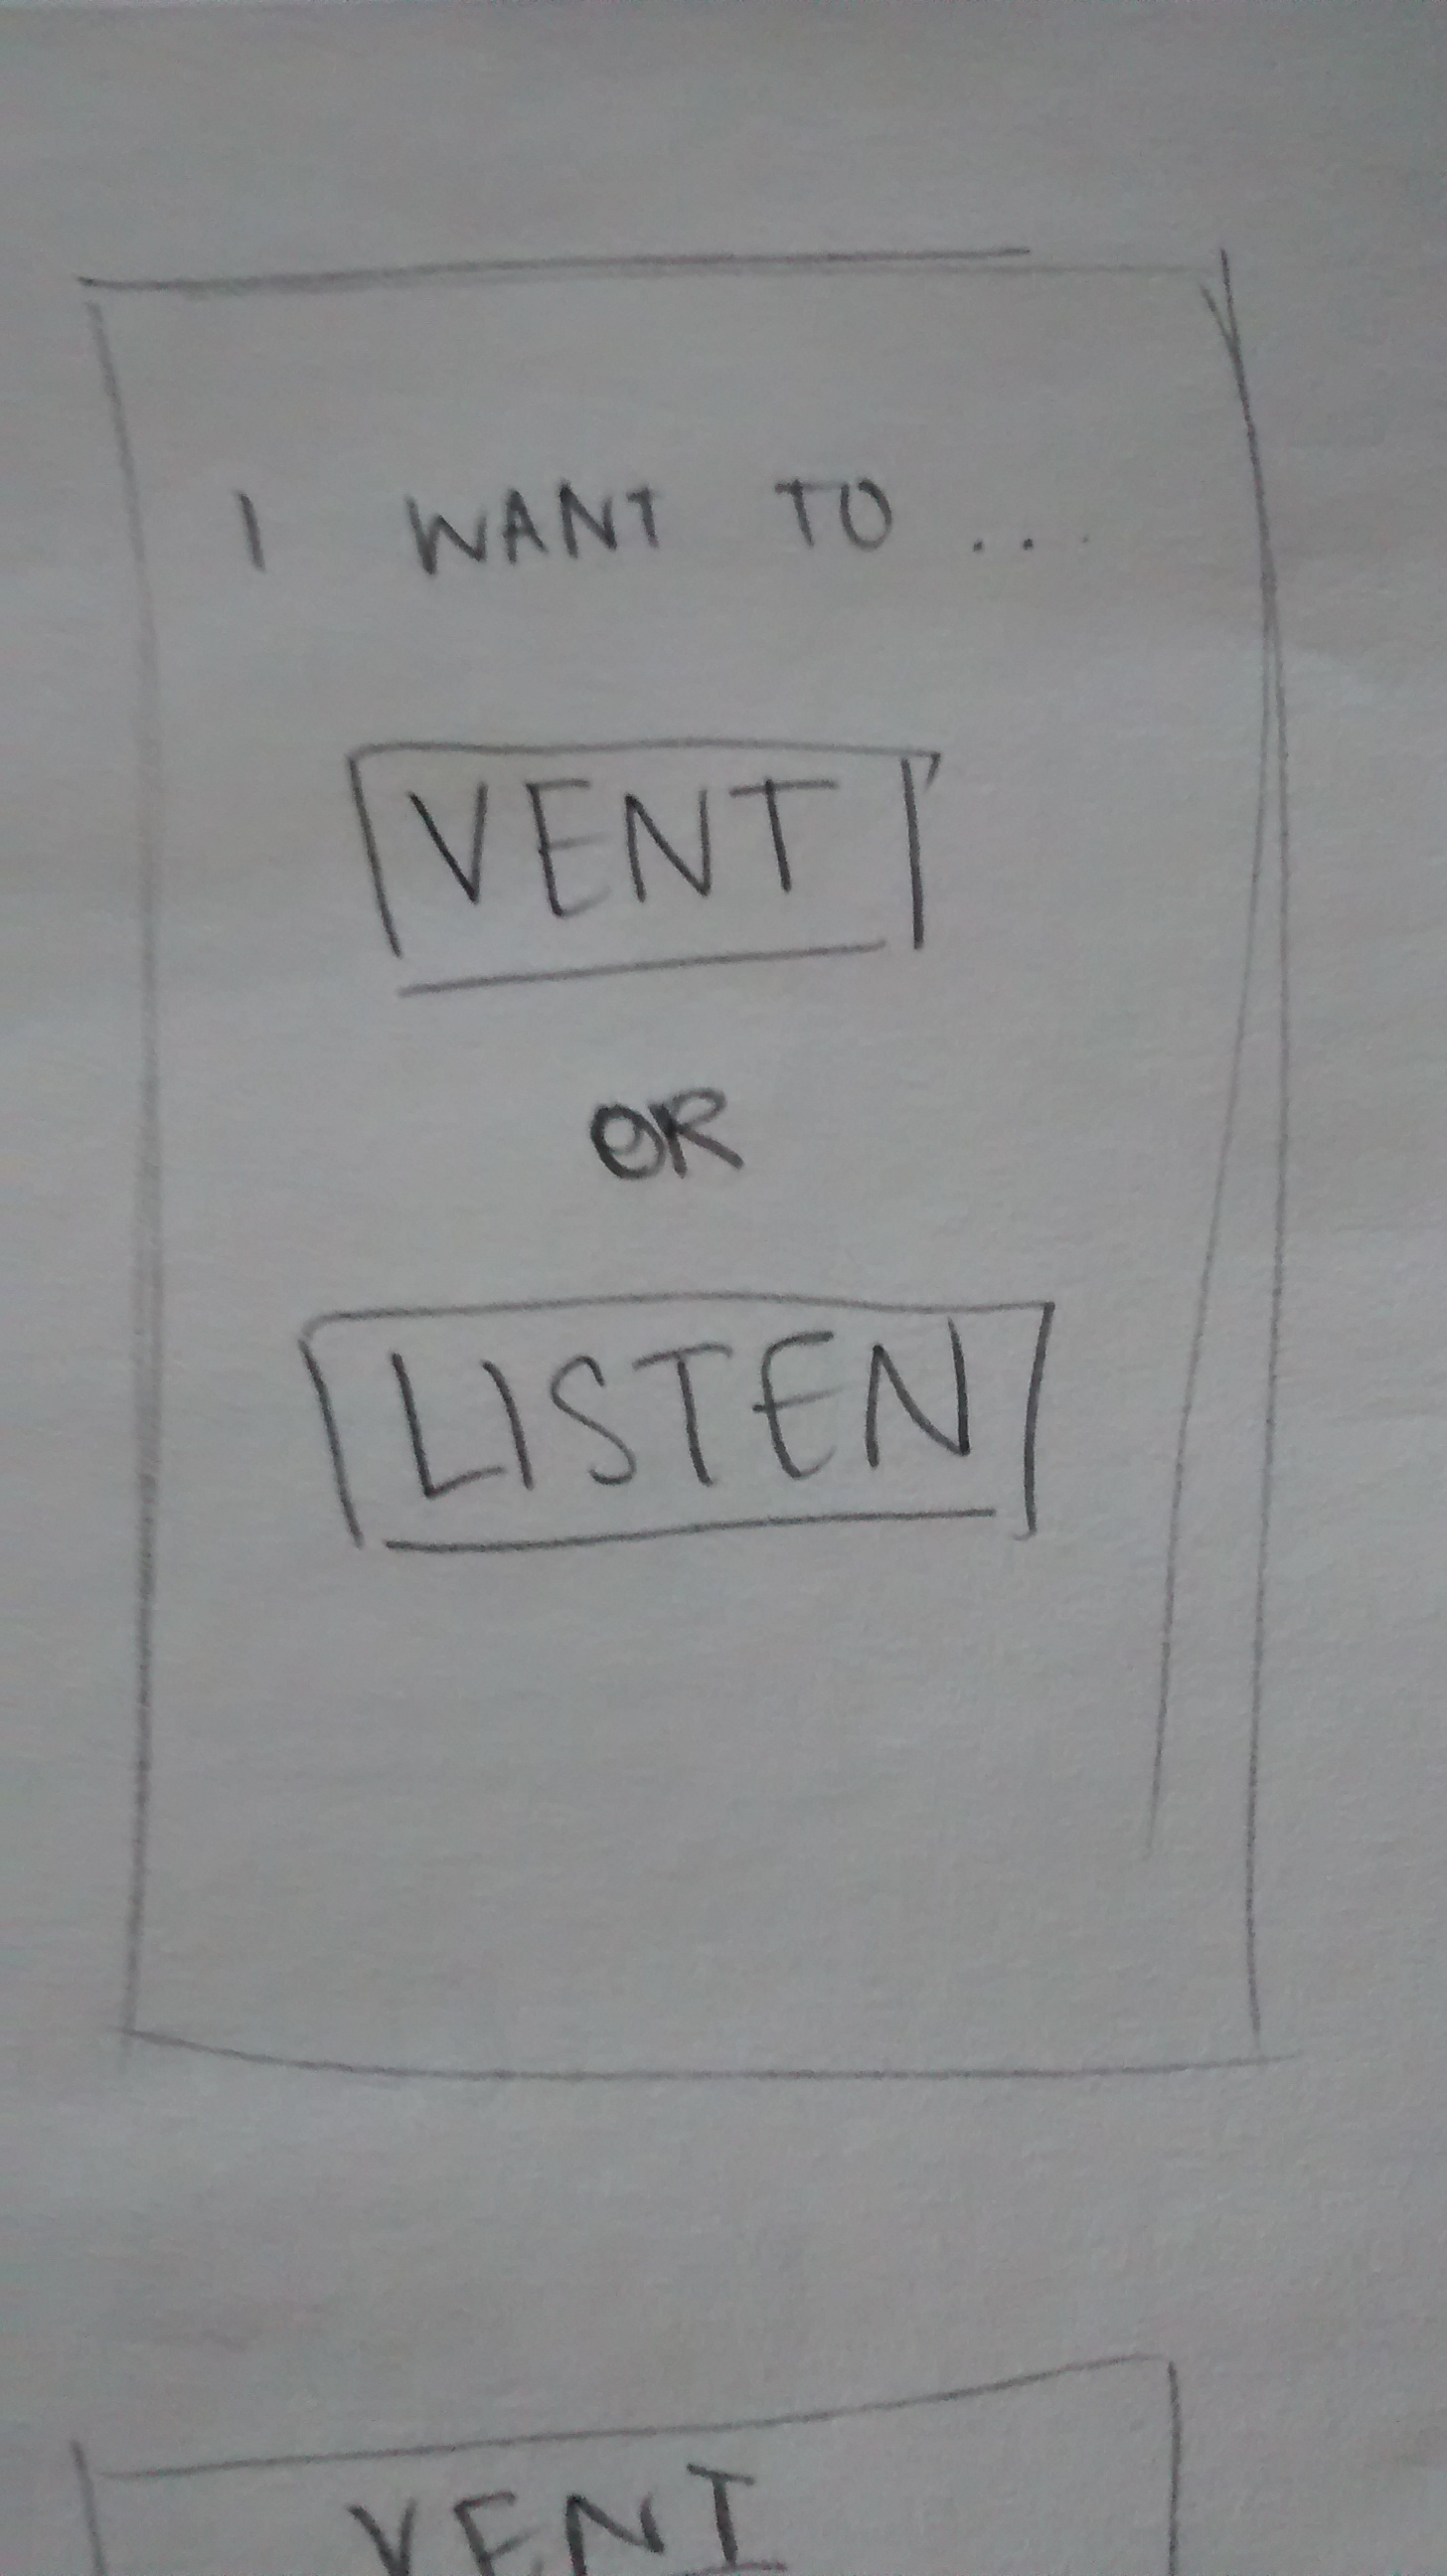 I WANT TO ...
VENT
OR
LISTEN
VENT